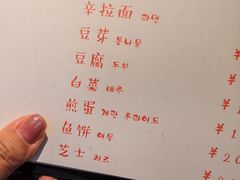 辛拉面 라면
豆芽 콩나물
豆腐 두부
白菜 배추
煎蛋 계란 후라이드
鱼饼 어묵
芝士 치즈
¥
¥
¥
¥
¥ 2
¥ 2